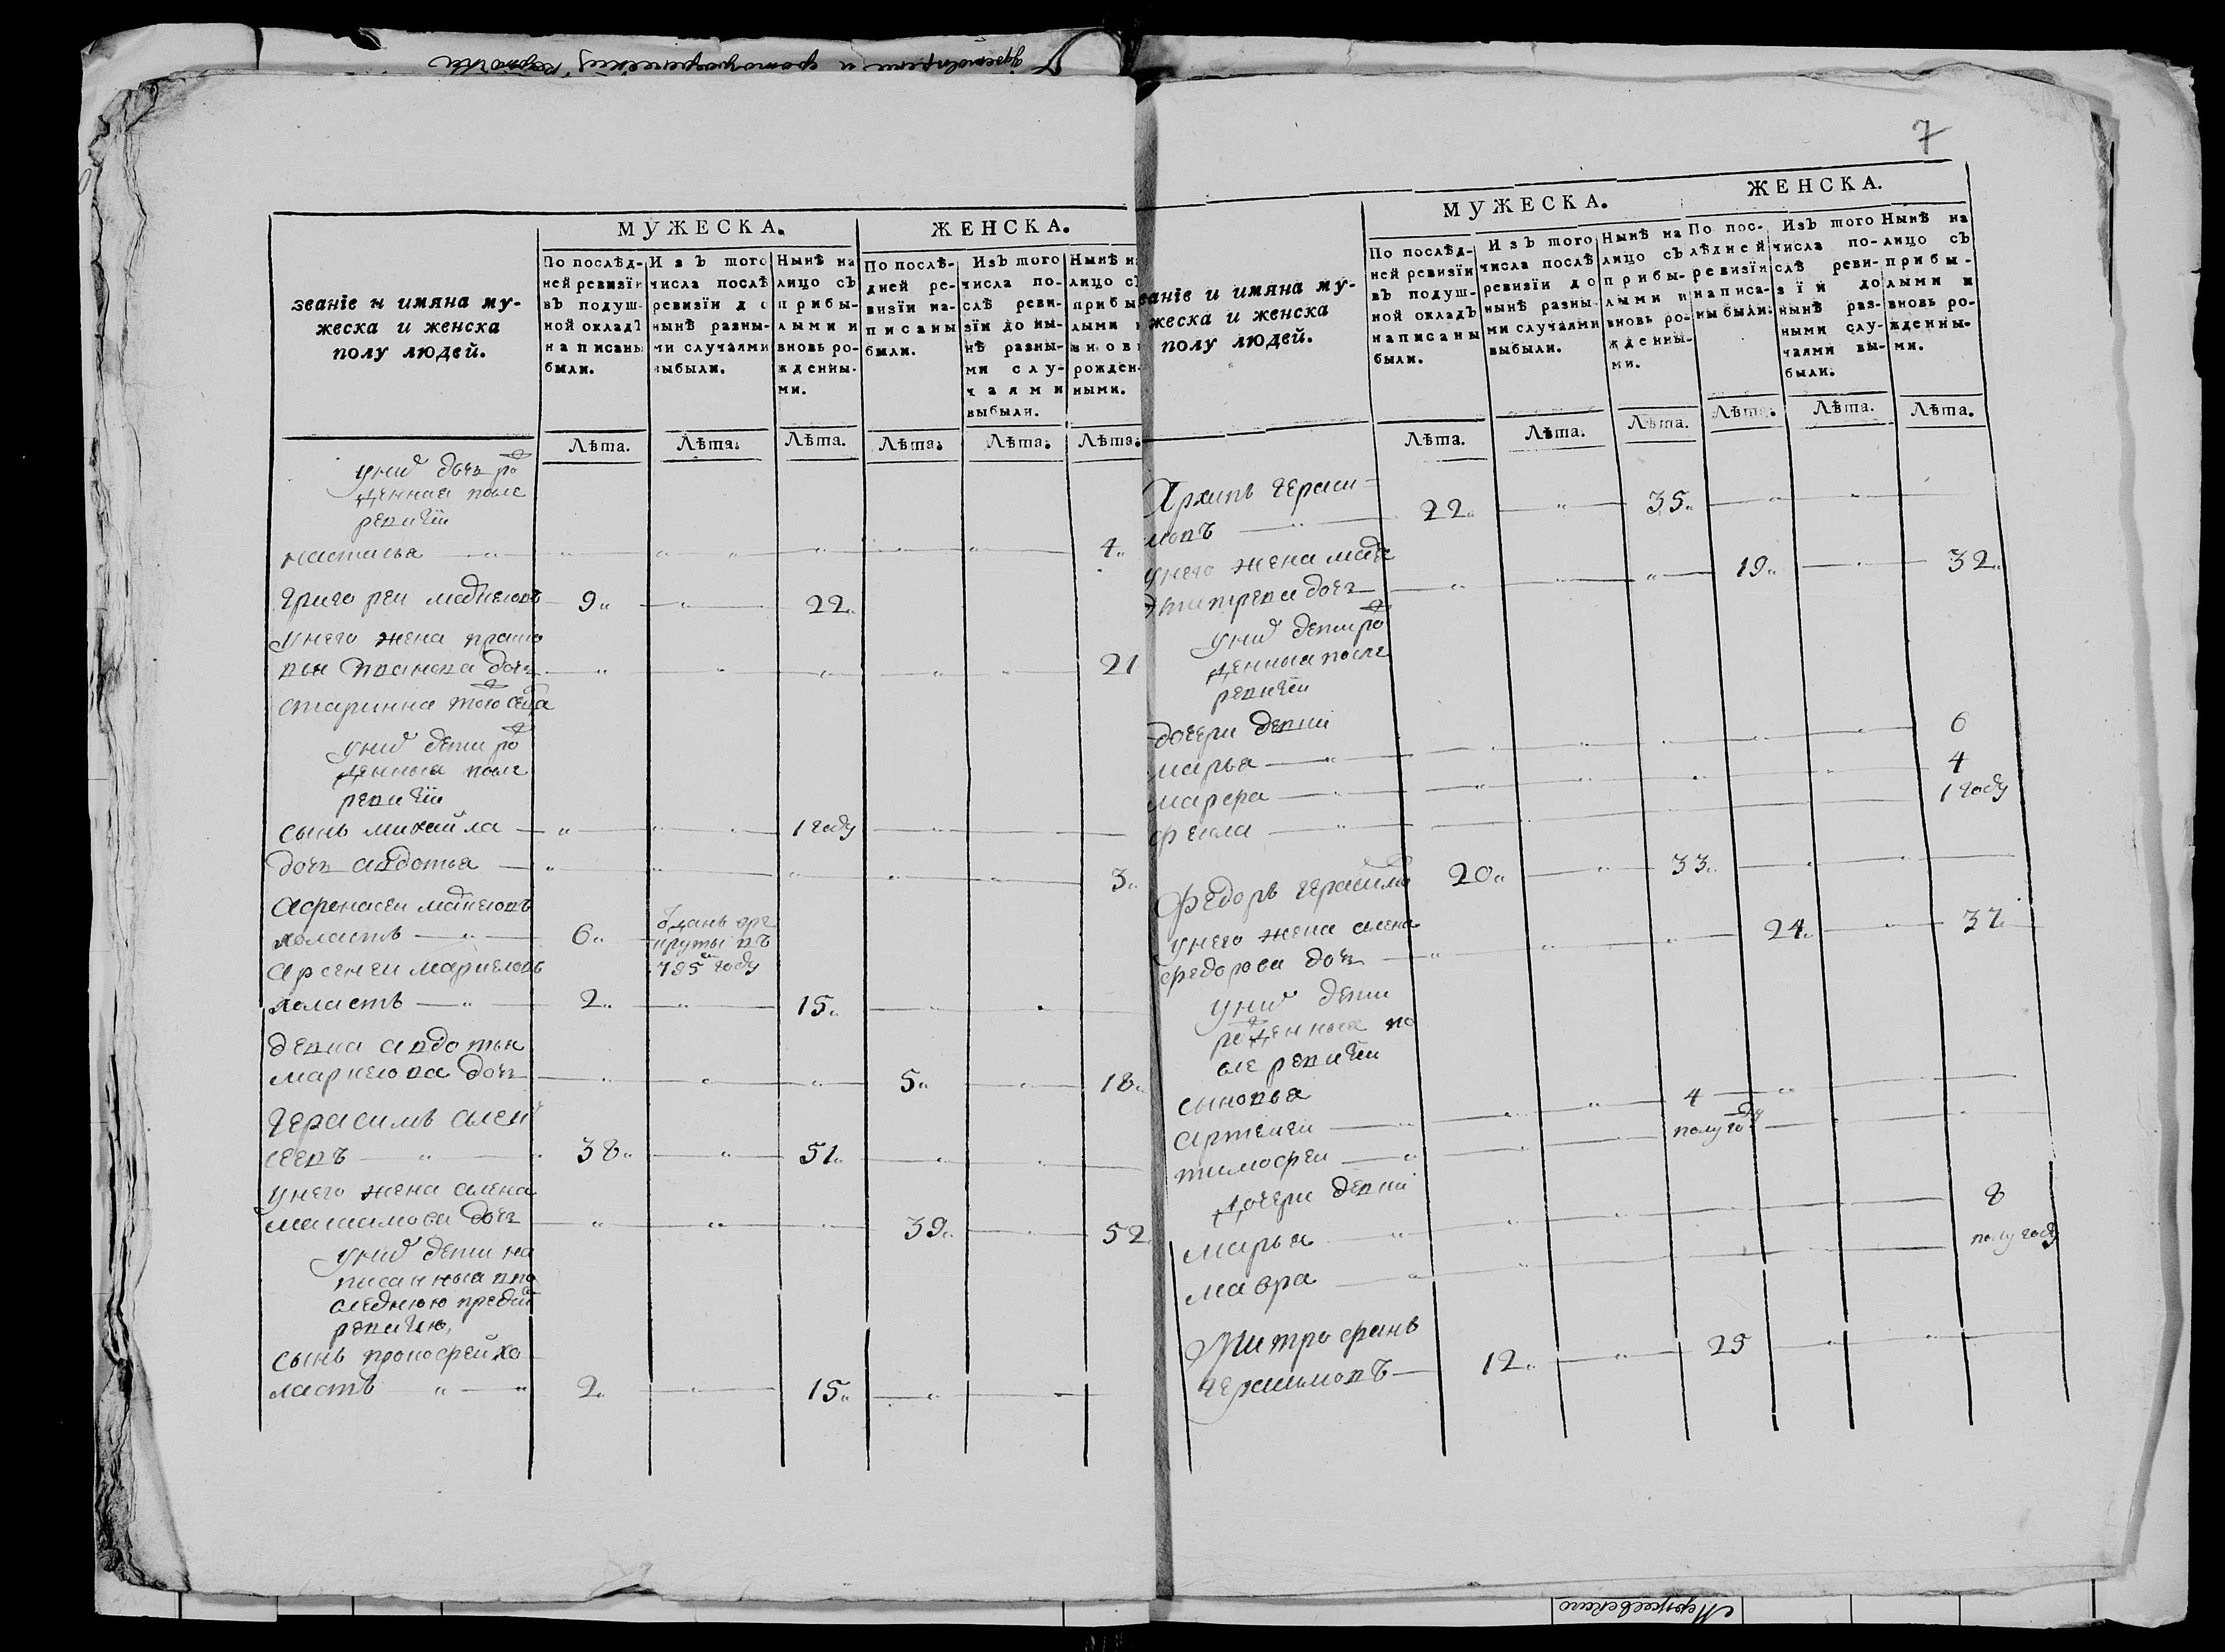 7
званіе и имяна му-
жеска и женска
полу людей.
МУЖЕСКА.
ЖЕНСКА.
По послѣд-
ней ревизіи
въ подуш-
ной окладъ
написаны
были.
Изъ того
числа послѣ
ревизіи до
нынѣ разны-
ми случаями
выбыли.
Нынѣ на
лицо съ
прибы-
лыми и
вновь ро-
жденны-
ми.
По послѣ-
дней ре-
визіи на-
писаны
были.
Изъ того
числа по-
слѣ реви-
зіи до ны-
нѣ разны-
ми слу-
чаями
выбыли.
Нынѣ н
лицо съ
прибы
лыми
вновь
рожден-
ными.
Лѣта. Лѣта. Лѣта. Лѣта. Лѣта. Лѣта.
у них дочь ро
жденная после
ревизіи
настасья 4
Григореи 9 22
у него жена праско
вья Иванова дочь 21
старинна того села
у них дети ро
жденныя после
ревизіи
сынъ михайла 1 году
дочь авдотья 3
Афонасеи
холастъ 6 отданъ в ре
круты въ
795 году
Арсенеи
холастъ 2 15
девка авдотья
дочь 5 18
Герасимъ алек
сеевъ 38 51
у него жена алена
максимова дочь 39 52
у них дети на
писанныя в по
следнюю пред сим
ревизию,
сынъ прокофей хо
ластъ 2 15
званіе и имяна му-
жеска и женска
полу людей.
МУЖЕСКА.
ЖЕНСКА.
По послѣд-
ней ревизіи
въ подуш-
ной окладъ
написаны
были.
Изъ того
числа послѣ
ревизіи до
нынѣ разны-
ми случаями
выбыли.
Нынѣ на
лицо съ
прибы-
лыми и
вновь ро-
жденны-
ми.
По пос-
лѣдней
ревизіи
написа-
ны были.
Изъ того
числа по-
слѣ реви-
зіи до
нынѣ раз-
ными слу-
чаями вы-
были.
Нынѣ на
лицо съ
прибы-
лыми и
вновь ро-
жденны-
ми.
Лѣта. Лѣта. Лѣта. Лѣта. Лѣта. Лѣта.
Архипъ гераси
мовъ 22 35
у него жена
дочь 19 32
у них дети ро
жденныя после
ревизіи
дочери девки
марья 6
марфа 4
фекла 1 году
Федоръ герасимов 20 33
у него жена алена
федорова дочь 24 37
у них дети
рожденныя по
сле ревизіи
сыновья
артемеи 4
тимофеи полугоду
дочери девки
марья 8
мавра полугоду
Митрофанъ
герасимовъ 12 25